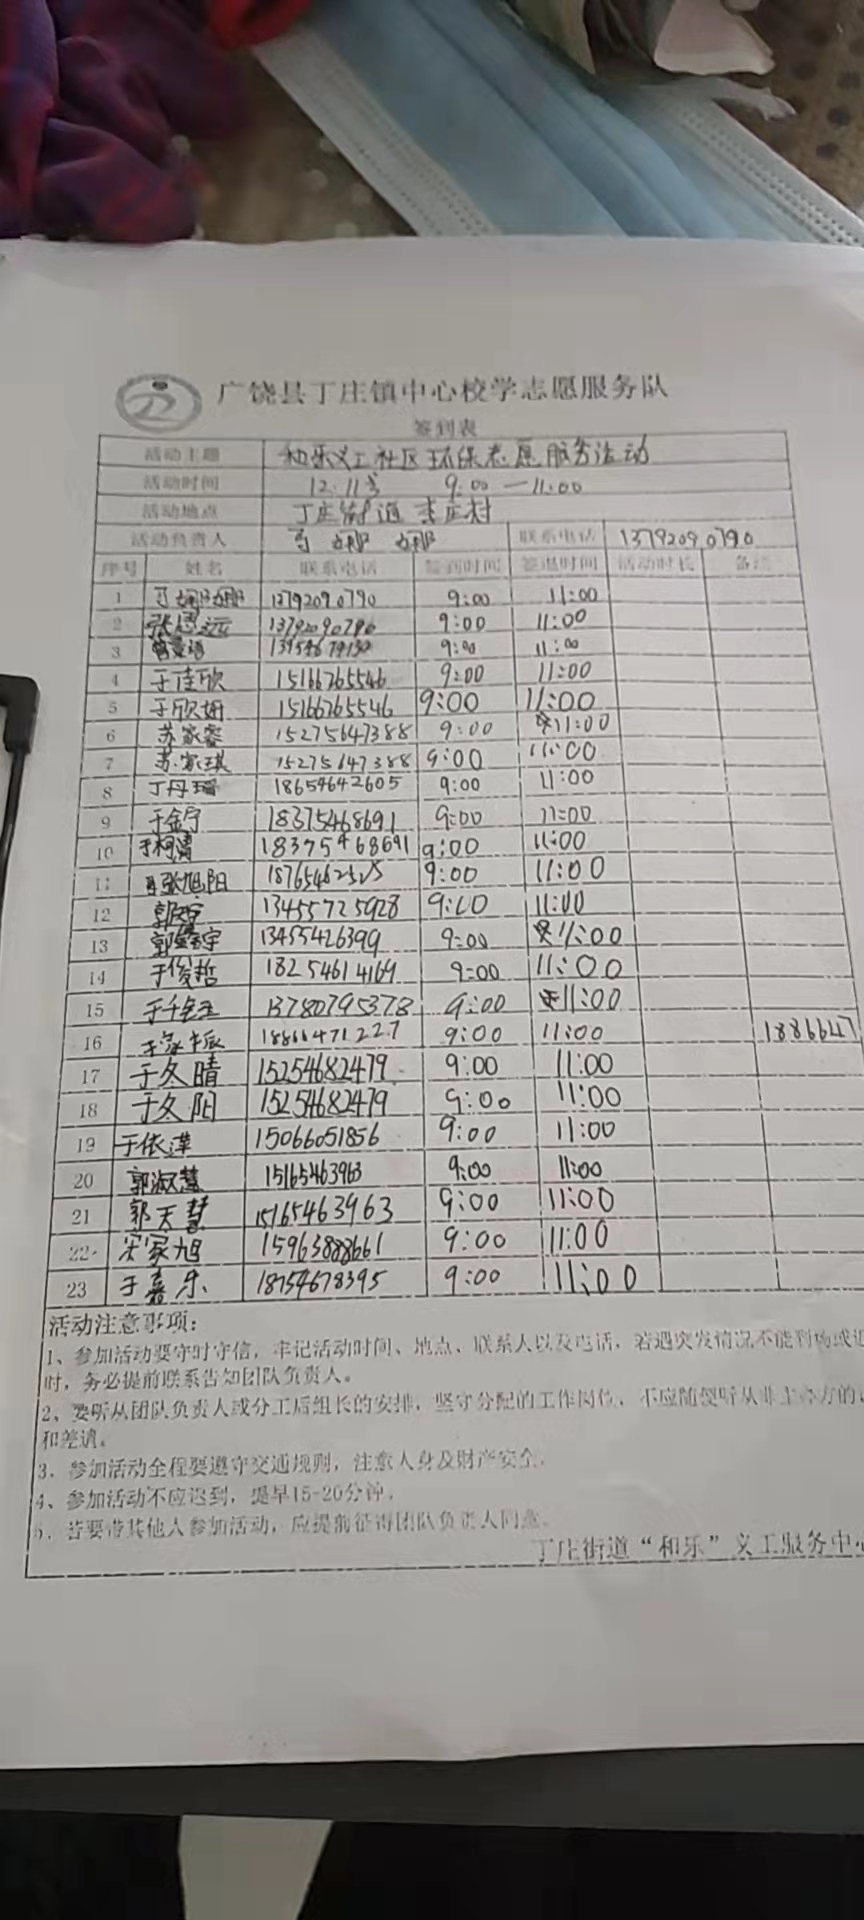 广饶县丁庄镇中心校学志愿服务队
签到表
活动主题 和乐义工社区环保志愿服务活动
活动时间 12.11号 9:00—11:00
活动地点 丁庄街道 李庄村
活动负责人 娜 娜 联系电话 13792090790
序号 姓名 联系电话 签到时间 签退时间 活动时长 备注
1 13792090790 9:00 11:00
2 张恩远 13792090790 9:00 11:00
3 9:00 11:00
4 于佳欣 15166765546 9:00 11:00
5 于欣妍 15166765546 9:00 11:00
6 苏家睿 15275647388 9:00 11:00
7 苏家琪 15275647388 9:00 11:00
8 丁丹瑶 18654642605 9:00 11:00
9 于金宁 18375468691 9:00 11:00
10 于柯清 18375468691 9:00 11:00
11 张旭阳 9:00 11:00
12 13455725928 9:00 11:00
13 13455426399 9:00 11:00
14 于俊哲 18254614169 9:00 11:00
15 13780795378 9:00 11:00
16 18866471227 9:00 11:00 1886647
17 于冬晴 15254682479 9:00 11:00
18 于冬阳 15254682479 9:00 11:00
19 于依潼 15066051856 9:00 11:00
20 郭淑慧 15165463963 9:00 11:00
21 郭天慧 15165463963 9:00 11:00
22 宋家旭 15963888661 9:00 11:00
23 于嘉乐 18754678395 9:00 11:00
活动注意事项:
1、参加活动要守时守信，牢记活动时间、地点、联系人以及电话，若遇突发情况不能到场或迟
时，务必提前联系告知团队负责人。
2、要听从团队负责人或分工后组长的安排，坚守分配的工作岗位，不应随便听从非主办方的
和差遣。
3、参加活动全程要遵守交通规则，注意人身及财产安全。
4、参加活动不应迟到，提早15-20分钟。
5、若要带其他人参加活动，应提前征得团队负责人同意。
丁庄街道“和乐”义工服务中心